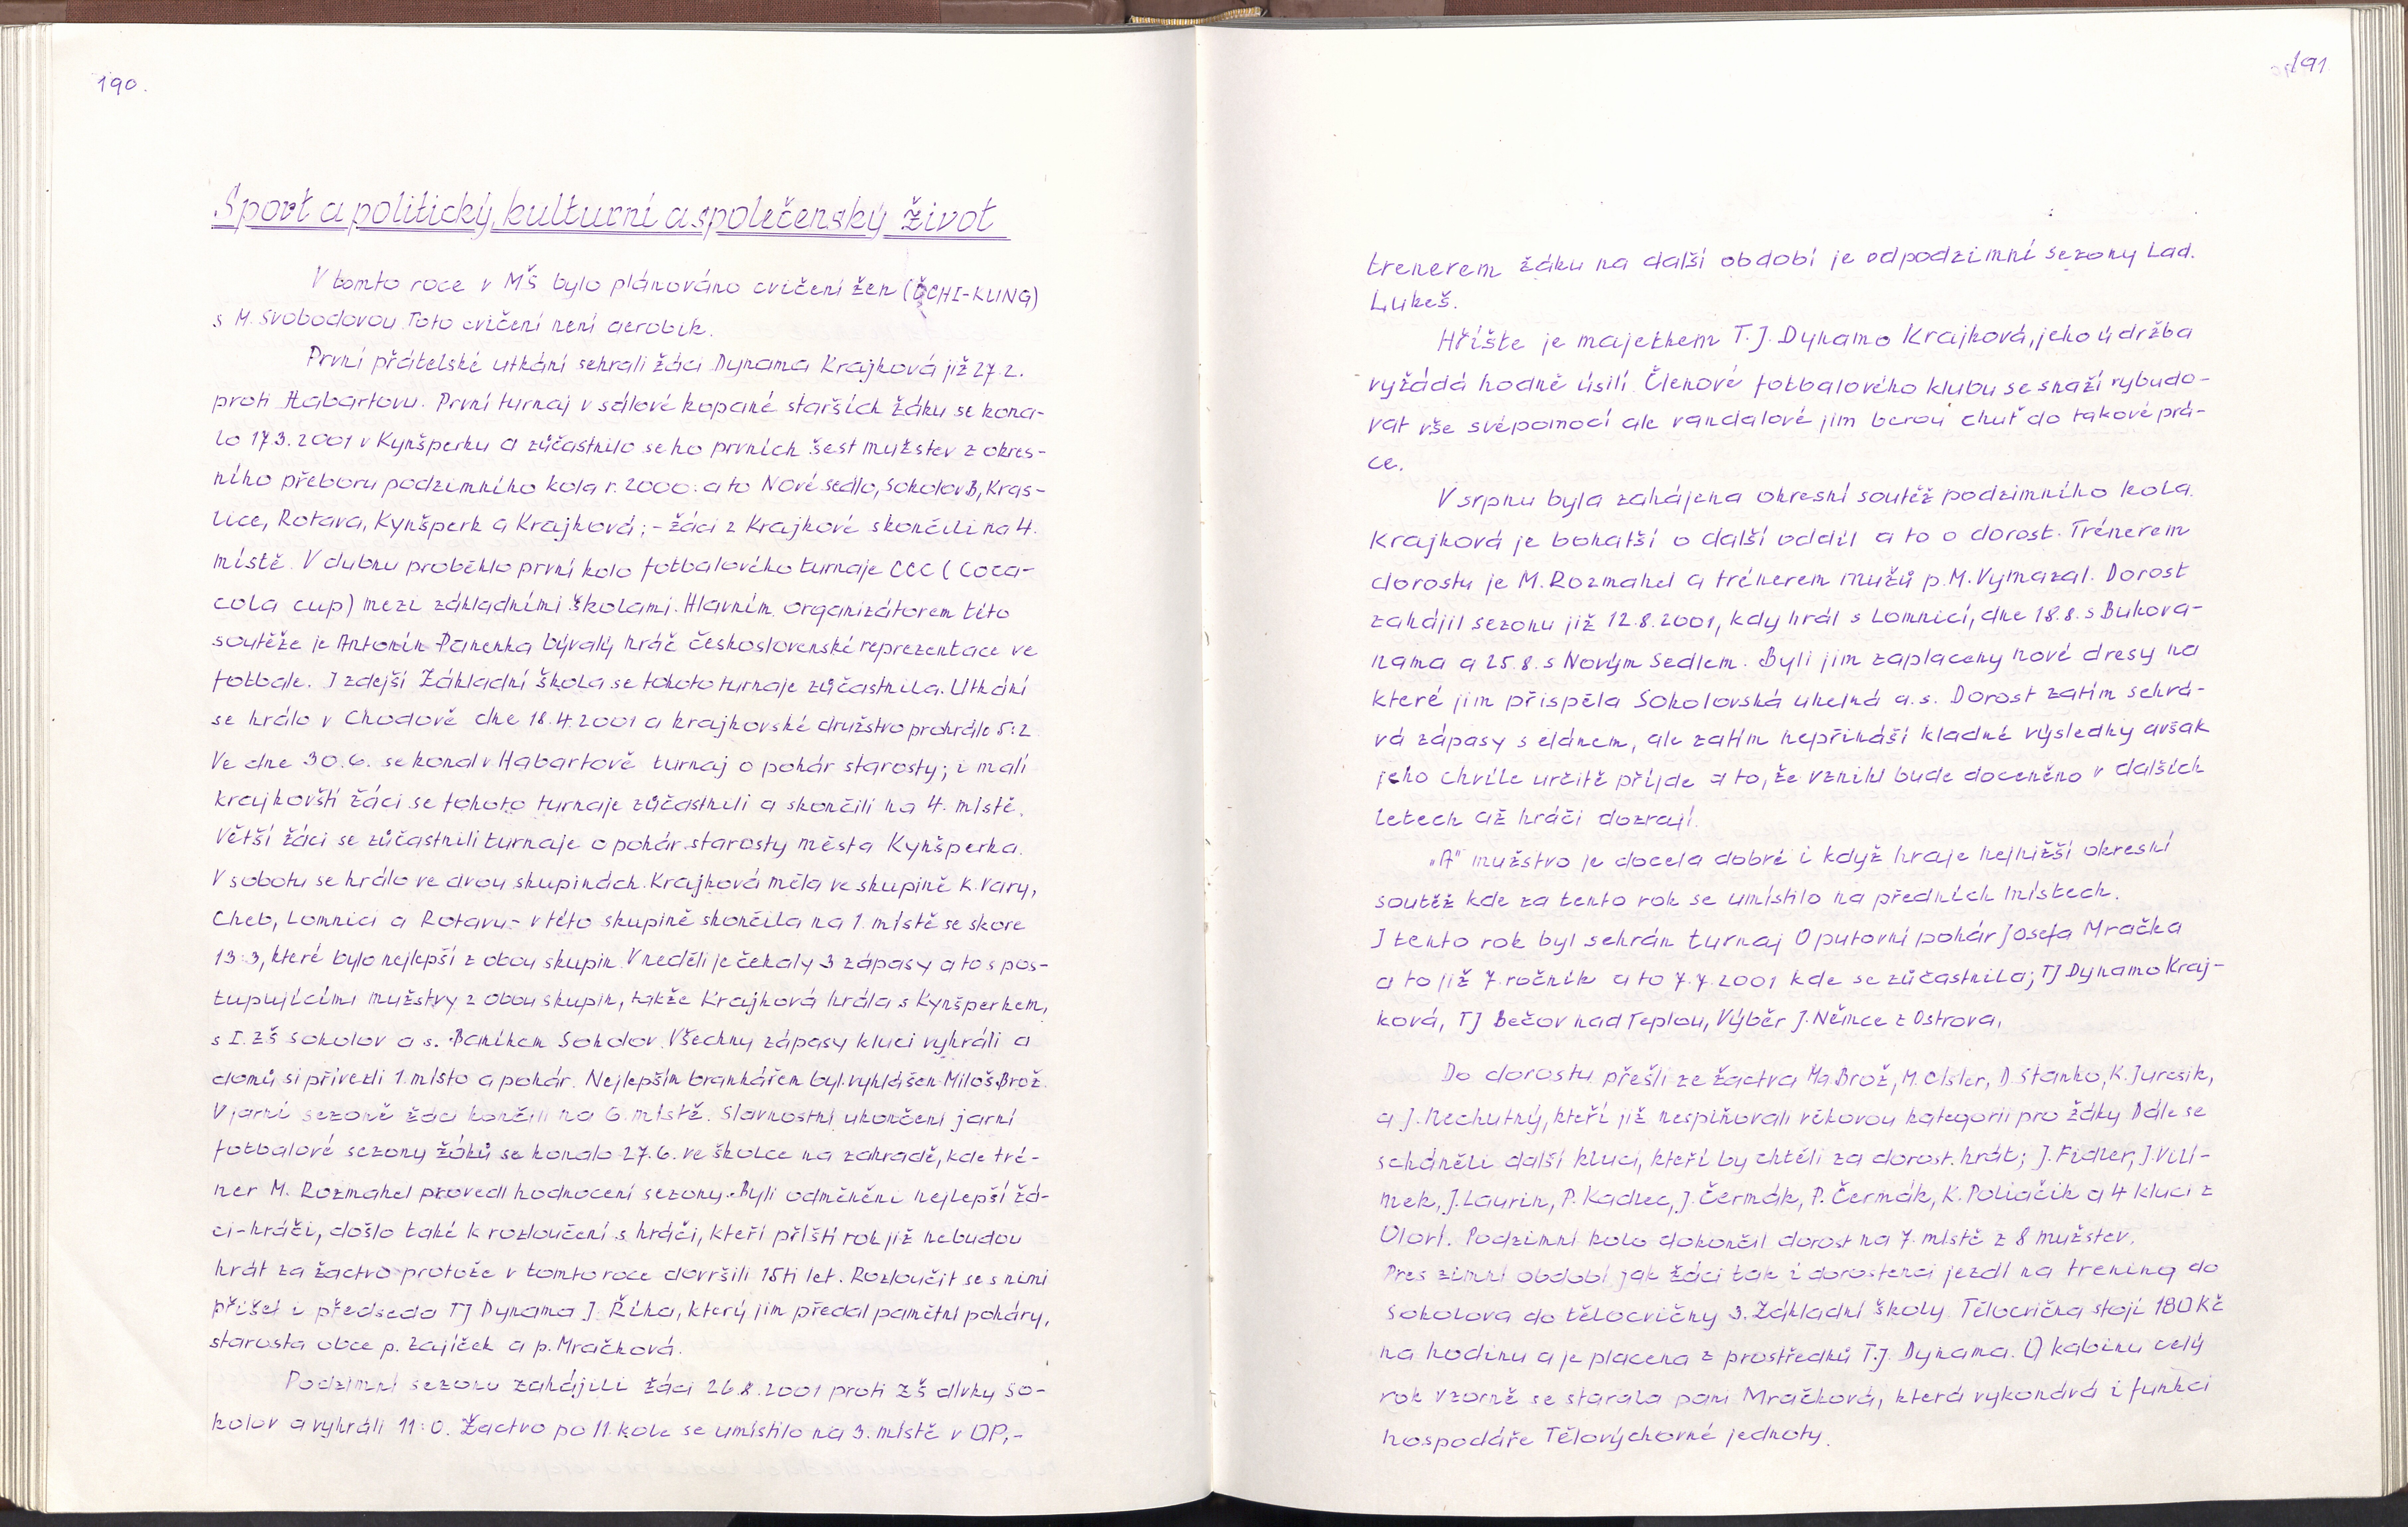 190.
Sport a politický, kulturní a společenský život
V tomto roce v MŠ bylo plánováno cvičení žen (ČCHI-KUNG)
s M. Svobodovou. Toto cvičení není aerobik.
První přátelské utkání sehráli žáci Dynama Krajková již 27.2.
proti Habartovu. První turnaj v sálové kopané starších žáku se kona-
lo 17.3.2001 v Kynšperku a zůčastnilo se ho prvních šest mužstev z okres-
ního přeboru podzimního kola r. 2000: a to Nové sedlo, Sokolov B, Kras-
lice, Rotava, Kynšperk a Krajková; - žáci z Krajkové skončili na 4.
místě. V dubnu proběhlo první kolo fotbalového turnaje CCC (Coca-
cola cup) mezi základními školami. Hlavním organizátorem této
soutěže je Antonín Panenka bývalý hráč československé reprezentace ve
fotbale. I zdejší Základní škola se tohoto turnaje zůčastnila. Utkání
se hrálo v Chodově dne 18.4.2001 a krajkovské družstvo prohrálo 5:2
Ve dne 30.6. se konal v Habartově turnaj o pohár starosty; i malí
krajkovští žáci se tohoto turnaje zůčastnili a skončili na 4. místě.
Větší žáci se zůčastnili turnaje o pohár starosty města Kynšperka.
V sobotu se hrálo ve dvou skupinách. Krajková měla ve skupině K. Vary,
Cheb, Lomnici a Rotavu - v této skupině skončila na 1. místě se skore
13:3, které bylo nejlepší z obou skupin. V neděli je čekaly 3 zápasy a to s pos-
tupujícími mužstvy z obou skupin, takže Krajková hrála s Kynšperkem,
s I. ZŠ Sokolov a s. Baníkem Sokolov. Všechny zápasy kluci vyhráli a
domů si přivezli 1. místo a pohár. Nejlepším brankářem byl vyhlášen Miloš Brož.
V jarní sezoně žáci končili na 6. místě. Slavnostní ukončení jarní
fotbalové sezony žáků se konalo 27.6. ve školce na zahradě, kde tré-
ner M. Rozmahel provedl hodnocení sezony. Byli odměněni nejlepší žá-
ci-hráči, došlo také k rozloučení s hráči, kteří příští rok již nebudou
hrát za žactvo protože v tomto roce dovršili 15ti let. Rozloučit se s nimi
přišel i předseda TJ Dynama J. Říha, který jim předal pamětní poháry,
starosta obce p. Zajíček a p. Mračková.
Podzimní sezonu zahájili žáci 26.8.2001 proti ZŠ dívky So-
kolov a vyhráli 11:0. Žactvo po 11. kole se umístilo na 3. místě v OP, -
191
trenerem žáku na další období je od podzimní sezony Lad.
Lukeš.
Hřište je majetkem T.J. Dynamo Krajková, jeho údržba
vyžádá hodně úsilí. Členové fotbalového klubu se snaží vybudo-
vat vše svépomocí ale vandalové jim berou chuť do takové prá-
ce.
V srpnu byla zahájena okresní soutěž podzimního kola.
Krajková je bohatší o další oddíl a to o dorost. Trénerem
dorostu je M. Rozmahel a trénerem mužů p. M. Vymazal. Dorost
zahájil sezonu již 12.8.2001, kdy hrál s Lomnicí, dne 18.8. s Bukova-
nama a 25.8. s Novým Sedlem. Byli jim zaplaceny nové dresy na
které jim přispěla Sokolovská uhelná a.s. Dorost zatím sehrá-
vá zápasy s elánem, ale zatím nepřináší kladné výsledky avšak
jeho chvíle určitě příjde a to, že vznikl bude doceněno v dalších
letech až hráči dozrají.
„A" mužstvo je docela dobré i když hraje nejnižší okresní
soutěž kde za tento rok se umístilo na předních místech.
I tento rok byl sehrán turnaj O putovní pohár Josefa Mračka
a to již 7. ročník a to 7.7.2001 kde se zůčastnila; TJ Dynamo Kraj-
ková, TJ Bečov nad Teplou, Výběr J. Němce z Ostrova.
Do dorostu přešli ze žactva M. Brož, M. Cisler, D. Stanko, K. Juresik,
a J. Nechutný, kteří již nesplňovali věkovou kategorii pro žáky. Dále se
scháněli další kluci, kteří by chtěli za dorost hrát; J. Fidler, J. Vilí-
mek, J. Laurin, P. Kadlec, J. Čermák, P. Čermák, K. Poliačik a 4 kluci z
Oloví. Podzimní kolo dokončil dorost na 7. místě z 8 mužstev.
Pres zimní období jak žáci tak i dorostenci jezdí na trening do
Sokolova do tělocvičny 3. Základní školy. Tělocvična stojí 180 Kč
na hodinu a je placena z prostředků T.J. Dynama. O kabinu celý
rok vzorně se starala paní Mračková, která vykonává i funkci
hospodáře Tělovýchovné jednoty.